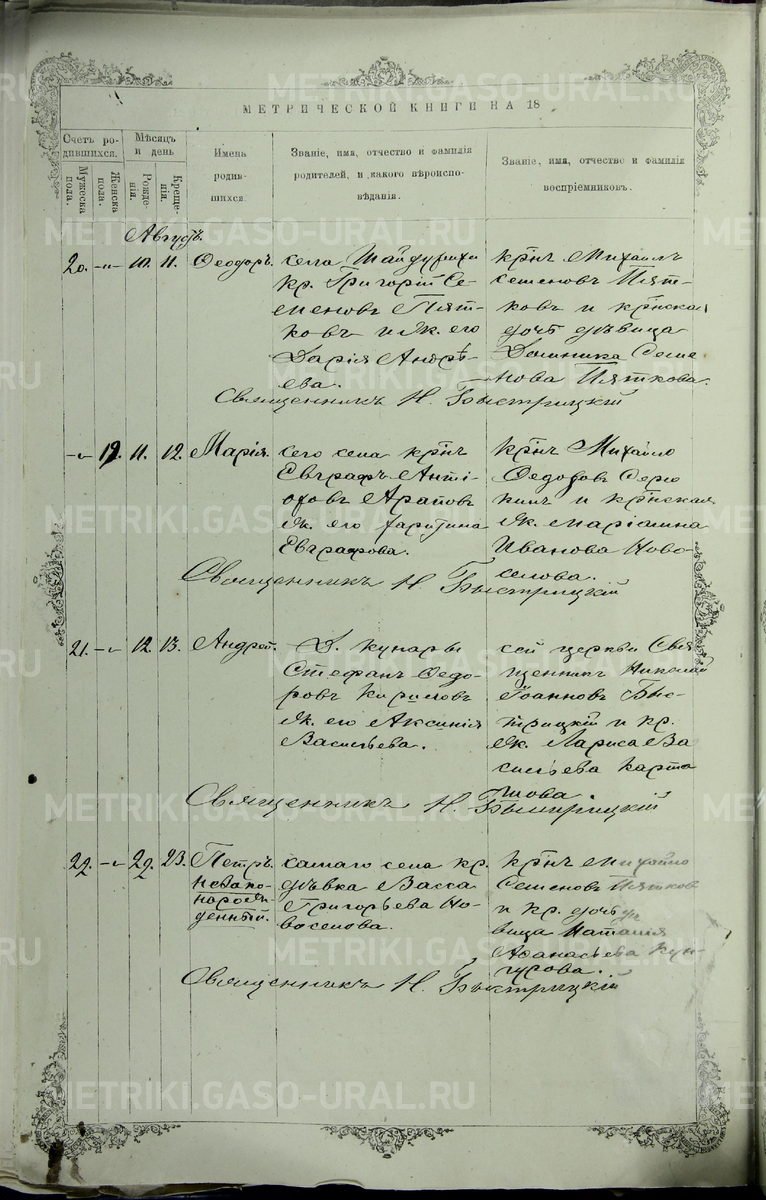 МЕТРИЧЕСКОЙ КНИГИ НА 18
Счетъ ро-
дившихся.
Мужеска
пола.
Женска
пола.
Мѣсяцъ
и день
Рожде-
нія.
Креще-
нія.
Имена
родив-
шихся.
Званіе, имя, отчество и фамилія
родителей, и какого вѣроиспо-
вѣданія.
Званіе, имя, отчество и фамилія
воспріемниковъ.
Августъ.
20. -"- 10. 11. Ѳеодоръ.
села Шайдурихи
кр. Григорій Се-
меновъ Пят-
ковъ и ж. его
Дарія Андрѣ-
ева.
крн҃ъ Михаилъ
Семеновъ Пят-
ковъ и кр҃нская
дочь дѣвица
Домника Семе-
нова Пяткова.
Священникъ Н. Быстрицкій
-"- 19. 11. 12. Марія.
сего села крн҃ъ
Евграфъ Анти-
ровъ Араповъ
ж. его Харитина
Евграфова.
Крн҃ъ Михайло
Ѳедоровъ Серю
кинъ и кр҃нская
ж. Маріамна
Иванова Ново-
селова.
Священникъ Н. Быстрицкій
21. -"- 12. 13. Андрей.
Д. Кунары
Стефанъ Ѳедо-
ровъ Кириловъ
ж. его Аксинія
Васильева.
сей церкви Свя
щенникъ Николай
Іоанновъ Быс-
трицкій и кр.
ж. Лариса Ва
сильева Карта
шова.
Священникъ Н. Быстрицкій
22. -"- 22. 23. Петръ.
незако-
норож-
денный.
самаго села кр.
дѣвка Васса
Григорьева Но-
воселова.
крн҃ъ Михайло
Семеновъ Пятков
и кр. дочь дѣ
вица Наталія
Аѳанасьева Кун-
гурова.
Священникъ Н. Быстрицкій
METRIKI.GASO-URAL.RU